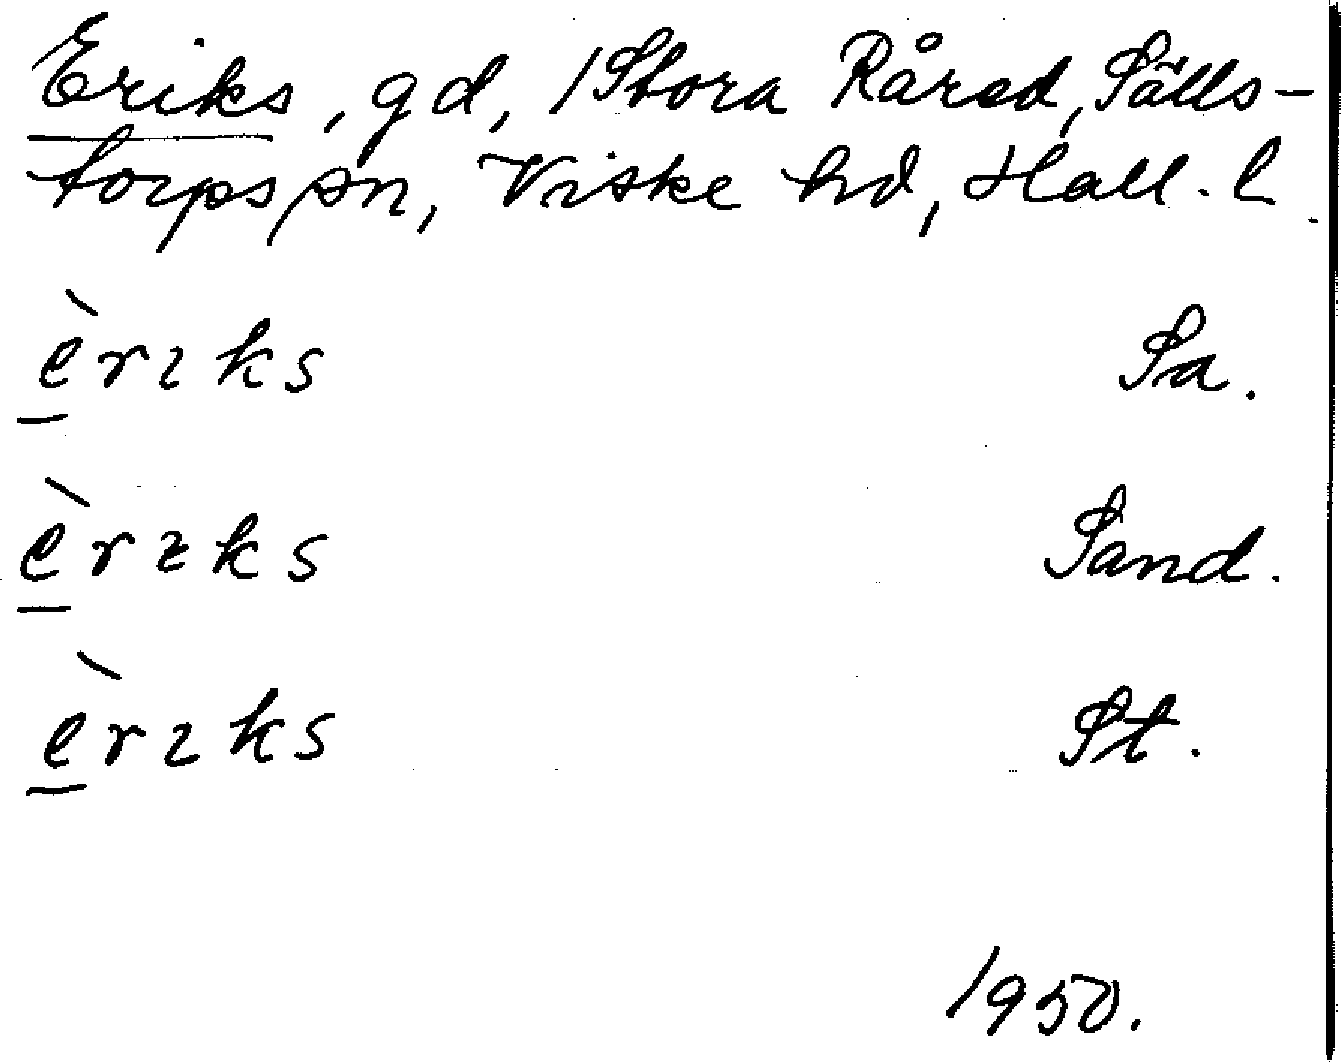 Eriks, gd, /Stora Råred, Sälls-
torps sn, Viske hd, Hall. l.
èrıks Sa.
èrıks Sand.
èrıks St.
1950.